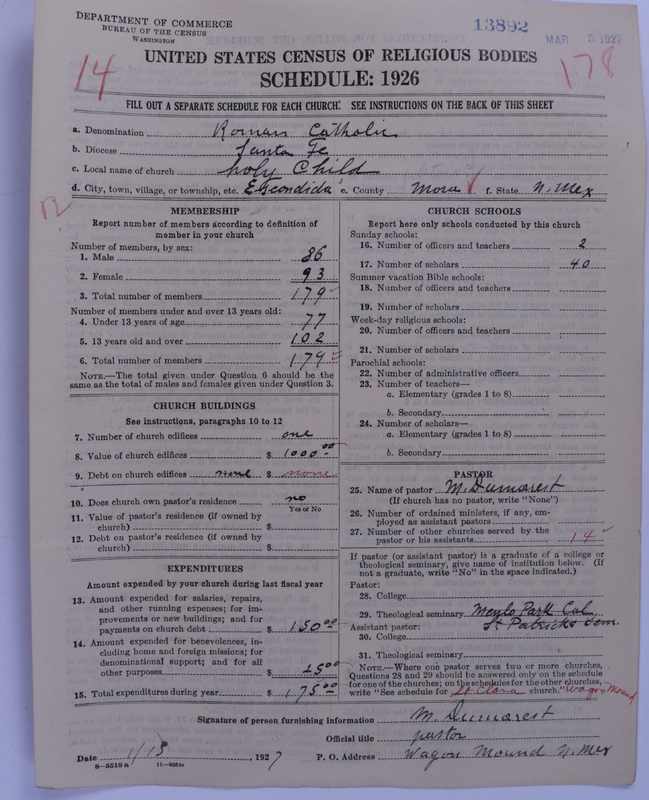 DEPARTMENT OF COMMERCE
BUREAU OF THE CENSUS
WASHINGTON
13892
MAR 5 1927
14
178
UNITED STATES CENSUS OF RELIGIOUS BODIES
SCHEDULE: 1926
FILL OUT A SEPARATE SCHEDULE FOR EACH CHURCH. SEE INSTRUCTIONS ON THE BACK OF THIS SHEET
a. Denomination Roman Catholic
b. Diocese Santa Fe
c. Local name of church holy Child
d. City, town, village, or township, etc. Escondida e. County Mora f. State N. Mex
MEMBERSHIP
Report number of members according to definition of
member in your church
Number of members, by sex:
1. Male 86
2. Female 93
3. Total number of members 179
Number of members under and over 13 years old:
4. Under 13 years of age 77
5. 13 years old and over 102
6. Total number of members 179
NOTE.—The total given under Question 6 should be the
same as the total of males and females given under Question 3.
CHURCH BUILDINGS
See instructions, paragraphs 10 to 12
7. Number of church edifices one
8. Value of church edifices $ 1000.00
9. Debt on church edifices none $ none
10. Does church own pastor's residence no
Yes or No
11. Value of pastor's residence (if owned by
church) $
12. Debt on pastor's residence (if owned by
church) $
EXPENDITURES
Amount expended by your church during last fiscal year
13. Amount expended for salaries, repairs,
and other running expenses; for im-
provements or new buildings; and for
payments on church debt $ 150.00
14. Amount expended for benevolences, in-
cluding home and foreign missions; for
denominational support; and for all
other purposes $ 25.00
15. Total expenditures during year $ 175.00
CHURCH SCHOOLS
Report here only schools conducted by this church
Sunday schools:
16. Number of officers and teachers 2
17. Number of scholars 40
Summer vacation Bible schools:
18. Number of officers and teachers
19. Number of scholars
Week-day religious schools:
20. Number of officers and teachers
21. Number of scholars
Parochial schools:
22. Number of administrative officers
23. Number of teachers—
a. Elementary (grades 1 to 8)
b. Secondary
24. Number of scholars—
a. Elementary (grades 1 to 8)
b. Secondary
PASTOR
25. Name of pastor M. Dumarest
(If church has no pastor, write "None")
26. Number of ordained ministers, if any, em-
ployed as assistant pastors
27. Number of other churches served by the
pastor or his assistants 14
If pastor (or assistant pastor) is a graduate of a college or
theological seminary, give name of institution below. (If
not a graduate, write "No" in the space indicated.)
Pastor:
28. College
29. Theological seminary Menlo Park Cal
Assistant pastor: St Patricks Sem.
30. College
31. Theological seminary
NOTE.—Where one pastor serves two or more churches,
Questions 28 and 29 should be answered only on the schedule
for one of the churches; on the schedules for the other churches,
write "See schedule for St Clara church." Wagon Mound
Signature of person furnishing information M. Dumarest
Official title pastor
Date 1/15, 1927 P. O. Address Wagon Mound N. Mex
8—5518 a